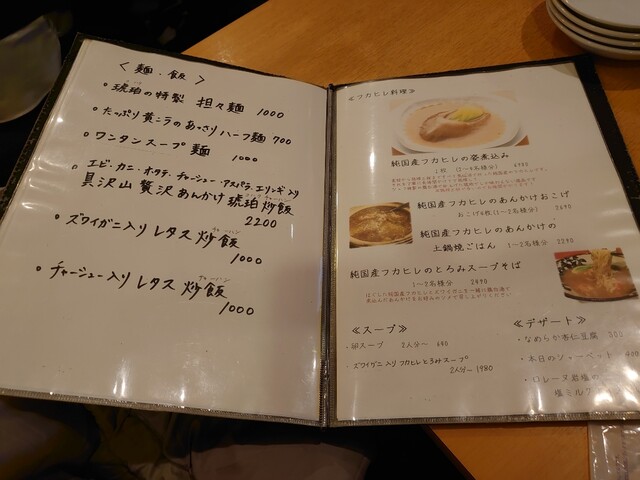 < 麺・飯 >
・琥珀の特製 担々麺 1000
・たっぷり黄ニラのあっさりハーフ麺 700
・ワンタンスープ麺 1000
・エビ・カニ・ホタテ・チャーシュー・アスパラ・エリンギ入り
具沢山 贅沢あんかけ琥珀炒飯
2200
・ズワイガニ入りレタス炒飯
1000
・チャーシュー入りレタス炒飯
1000
≪フカヒレ料理≫
純国産フカヒレの姿煮込み
1枚 (2〜3名様分)
純国産フカヒレのあんかけおこげ
おこげ4枚(1〜2名様分) 2690
純国産フカヒレのあんかけの
土鍋焼ごはん 1〜2名様分 2290
純国産フカヒレのとろみスープそば
1〜2名様分 2490
≪スープ≫
・卵スープ 2人分〜 690
・ズワイガニ入りフカヒレとろみスープ
2人分〜1980
≪デザート≫
・なめらか杏仁豆腐
・本日のソルベット
・ロレーヌ岩塩の
塩ミルク